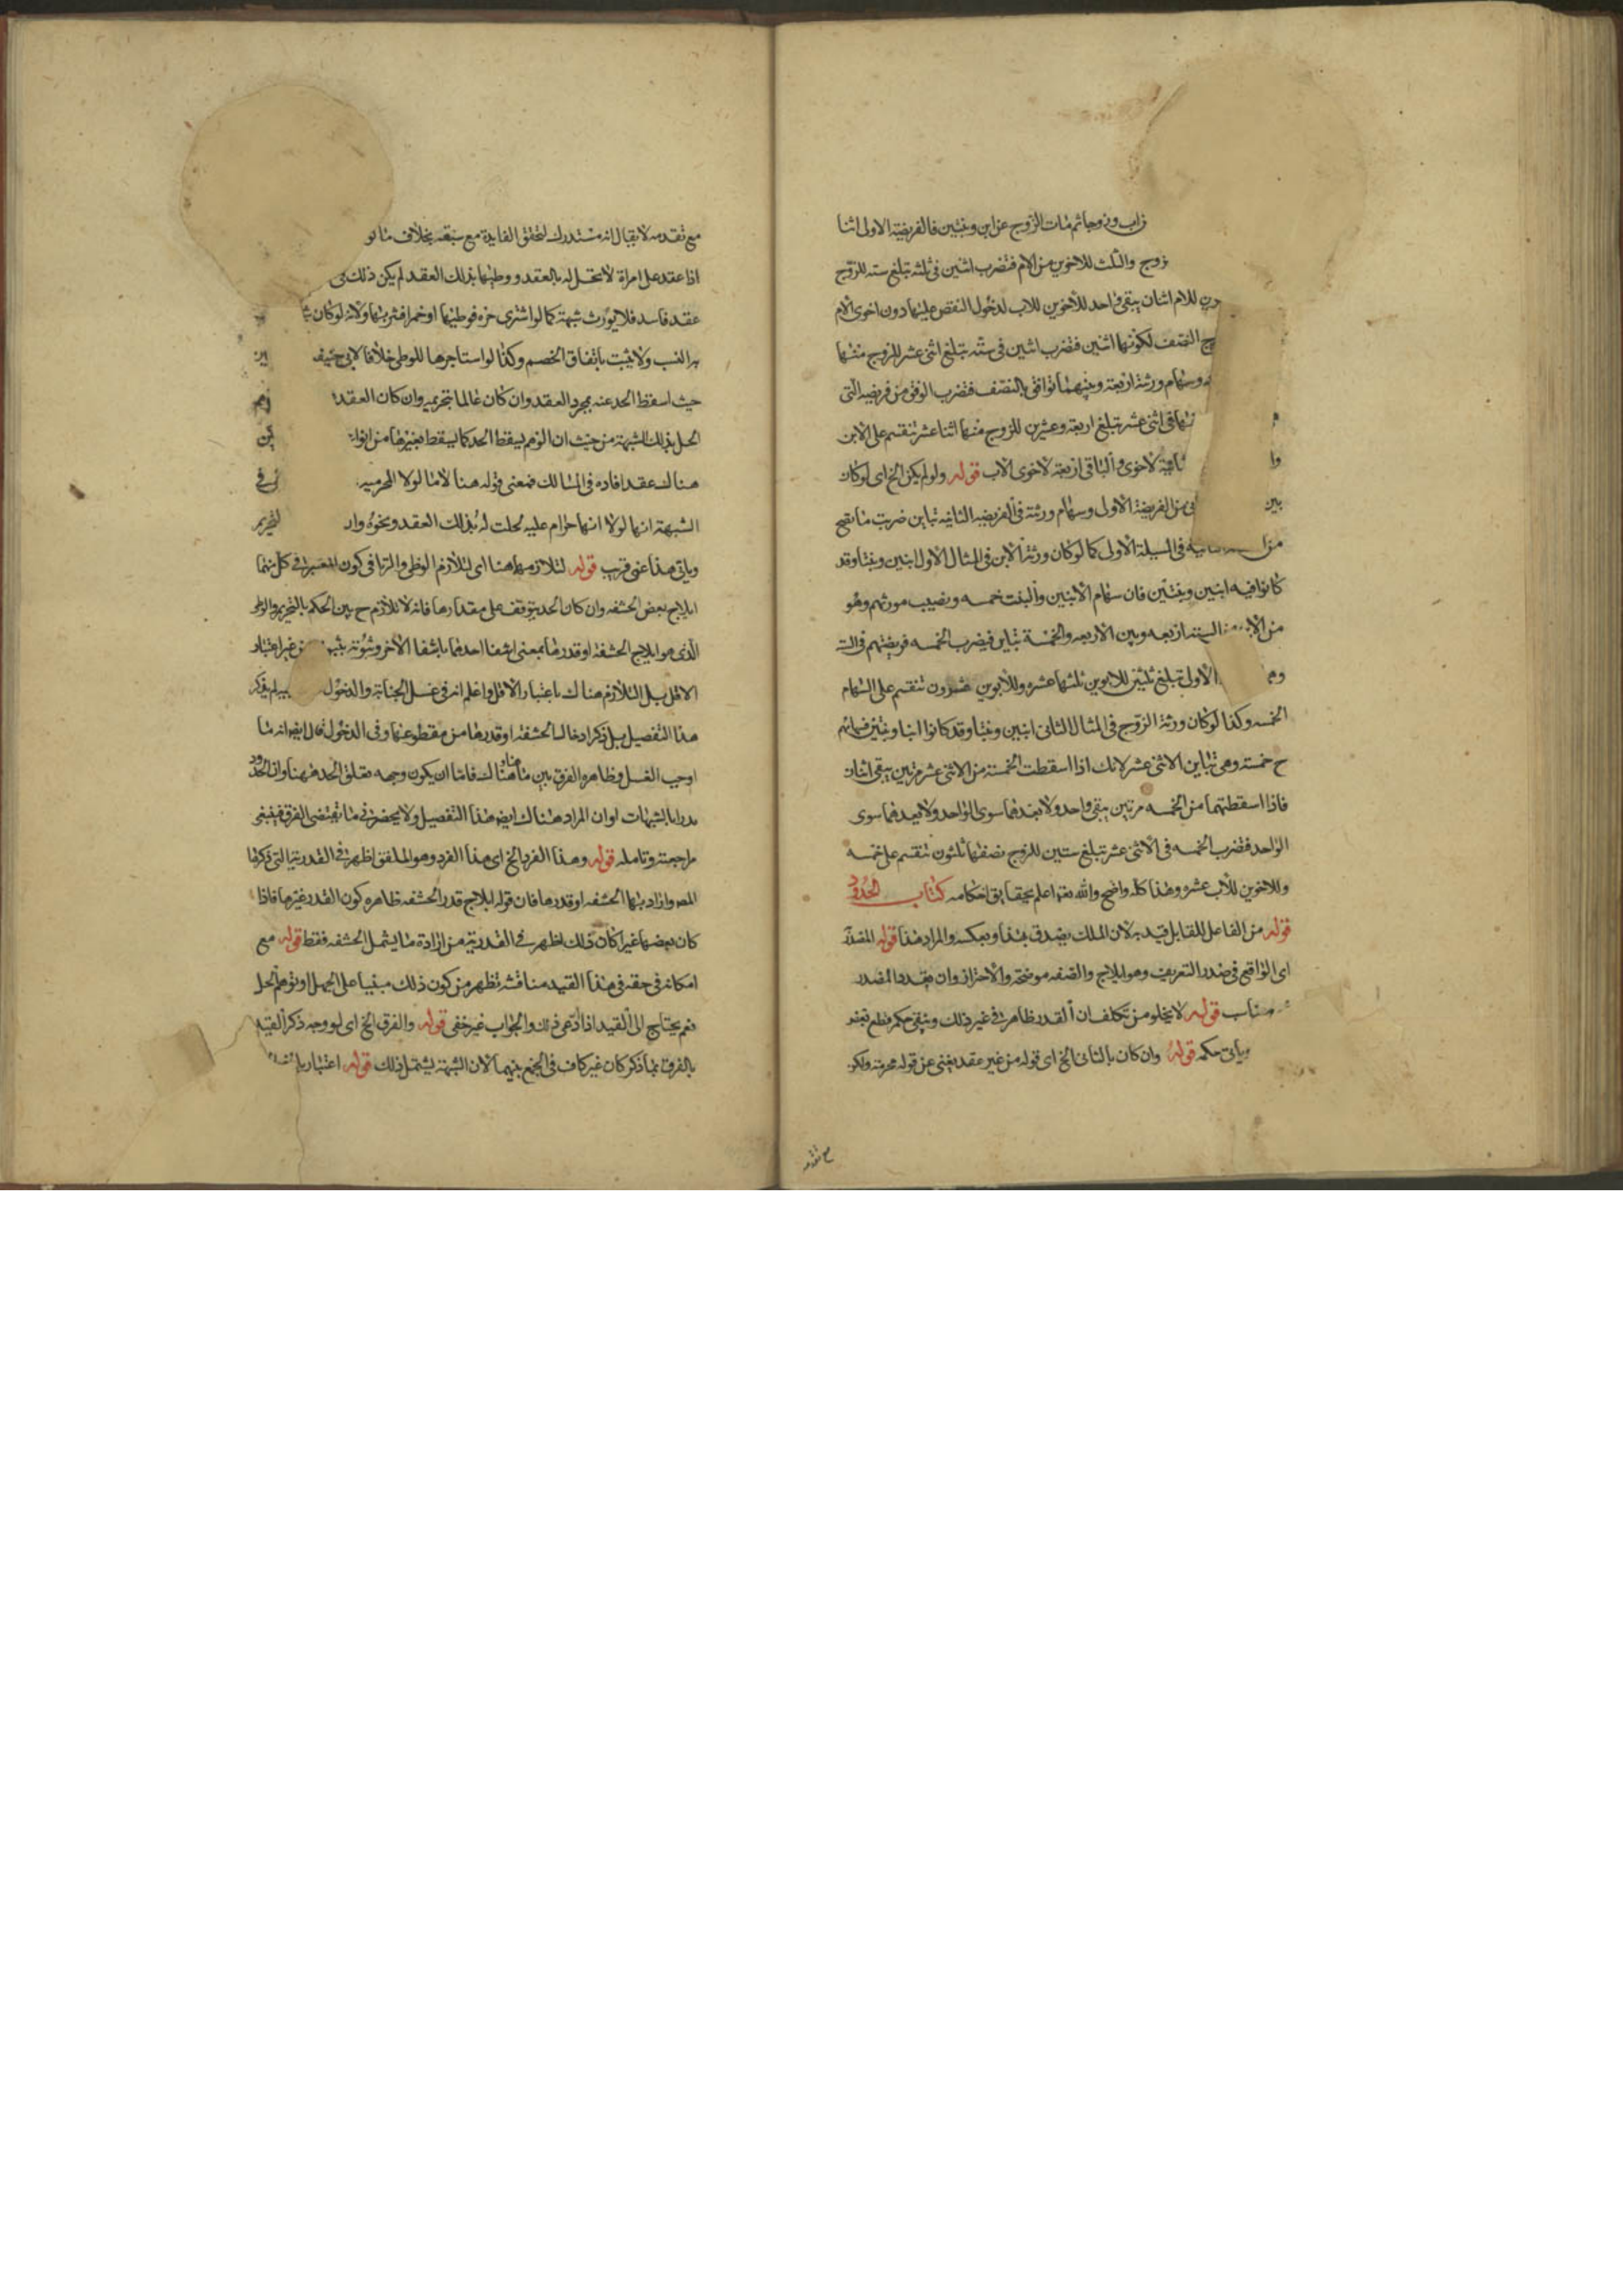 زاب وزوجا ثم مات الزوج عن ابن وبنتين فالفريضة الاولى اثنا
زوج والثلث للاخوين من الام فتضرب اثنين في ثلثه تبلغ سته للزوج
للام اثنان يبقى واحد للاخوين للاب لدخول النقص عليهما دون اخوى الام
النصف لكونها اثنين فتضرب اثنين في سته تبلغ اثنى عشر للزوج منها
وسهام ورثته اربعة وبينهما توافق بالنصف فتضرب الوفق من فريضه التى
في اثنى عشر تبلغ اربعة وعشرين للزوج منها اثنا عشر تنقسم على الابن
لاخوى والباقى اربعة لاخوى الاب قوله ولو لم يكن الخ اى لو كان
بين من الفريضة الاولى وسهام ورثته في الفريضه الثانية تباين ضربت ما تصح
في المسئلة الاولى كما لو كان ورثة الابن في المثال الاول ابنين وبنتا وقد
كانوا فيه ابنين وبنتين فان سهام الابنين والبنت خمسه ونصيب مورثهم وهو
من الستة اربعه وبين الاربعه والخمسة تباين فيضرب الخمسه فريضتهم في الستة
الاولى تبلغ ثلثين للابوين ثلثها عشره وللابوين عشرون تنقسم على السهام
الخمسه وكذا لو كان ورثة الزوج في المثال الثاني ابنين وبنتا وقد كانوا ابنا وبنتين فسهامهم
ح خمسته وهى تباين الاثنى عشر لانك اذا اسقطت الخمسة من الاثنى عشر مرتين يبقى اثنان
فاذا اسقطتهما من الخمسه مرتين يبقى واحد ولا يعدهما سوى الواحد ولا يعدهما سوى
الواحد فتضرب الخمسه في الاثنى عشر تبلغ ستين للزوج نصفها ثلثون تنقسم على خمسه
وللاخوين للاب عشره وهذا كله واضح والله تعه اعلم بحقايق احكامه كتاب الحدود
قوله من الفاعل للقابل قيد به لان الملك يصدق بهذا وبعكسه والمراد هذا قوله المصدر
اى الواقع في صدر التعريف وهو ايلاج والصفه موضحه والاحتراز وان بقدر المصدر
قوله لا يخلو من تكلف ان القدر ظاهر في غير ذلك ويبقى حكم مقطع بعضه
وياتى حكمه قوله وان كان بالثانى الخ اى قوله من غير عقد يغنى عن قوله محرمة ولكو
مع تقدمه
مع تقدمه لا يقال انه مستدرك لتحقق الفايدة مع سبقه بخلاف ما لو
اذا عقد على امراة لا تحل له بالعقد ووطيها بذلك العقد لم يكن ذلك في
عقد فاسد فلا يورث شبهة كما لو اشترى حره فوطيها او خمرا فشربها ولانه لو كان
به النسب ولا يثبت باتفاق الخصم وكذا لو استاجرها للوطى خلافا لابى حنيفه
حيث اسقط الحد عنه بمجرد العقد وان كان عالما بتحريمه وان كان العقد
الحل بذلك الشبهة من حيث ان الوهم يسقط الحد كما يسقط بغيرها من انواع
هناك عقد افاده في المسالك فمعنى قوله هنا لاما لولا المحرميه
الشبهة انها لولا انها حرام عليه لحلت له بذلك العقد ونحوه وار التحريم
وياتى هذا عن قرب قوله لتلازمهما هنا اى لتلازم الوطى والزنا في كون المعتبر في كل منهما
ايلاج بعض الحشفه وان كان الحد يتوقف على مقدارها فانه لا تلازم ح بين الحكم بالتحريم والوطى
الذى هو ايلاج الحشفة او قدرها بمعنى انتفا احدهما بانتفا الاخر وثبوته بثبوته من غير اعتبار
الاقل بل التلازم هناك باعتبار الاقل واعلم انه في غسل الجنابة والدخول لم يذكر
هذا التفصيل بل ذكر ادخال الحشفة او قدرها من مقطوعها وفي الدخول قال ايضا انه ما
اوجب الغسل وظاهره الفرق بين ما هنا وهناك فاما ان يكون وجهه تعلق الحد هنا وان الحدود
تدرا بالشبهات او ان المراد هناك ايضا هذا التفصيل ولا يحضرنى ما يقتضى الفرق فينبغى
مراجعته وتامله قوله وهذا الفرد الخ اى هذا الفرد وهو الملفق اظهر في القدرية التى ذكرها
المص واراد بها الحشفه او قدرها فان قوله ايلاج قدر الحشفه ظاهره كون القدر غيرها فاذا
كان بعضها غيرا كان ذلك اظهر في القدرية من ارادة ما يشمل الحشفه فقط قوله مع
امكانه في حقه في هذا القيد مناقشه تظهر من كون ذلك مبنيا على الجهل او توهم الحل
نعم يحتاج الى القيد اذا ادعى ذلك والجواب غير خفى قوله والفرق الخ اى لو وجه ذكر القيد
بالفرق بما ذكر كان غير كاف في الجمع بينهما لان الشبهة يشتمل ذلك قوله اعتبار